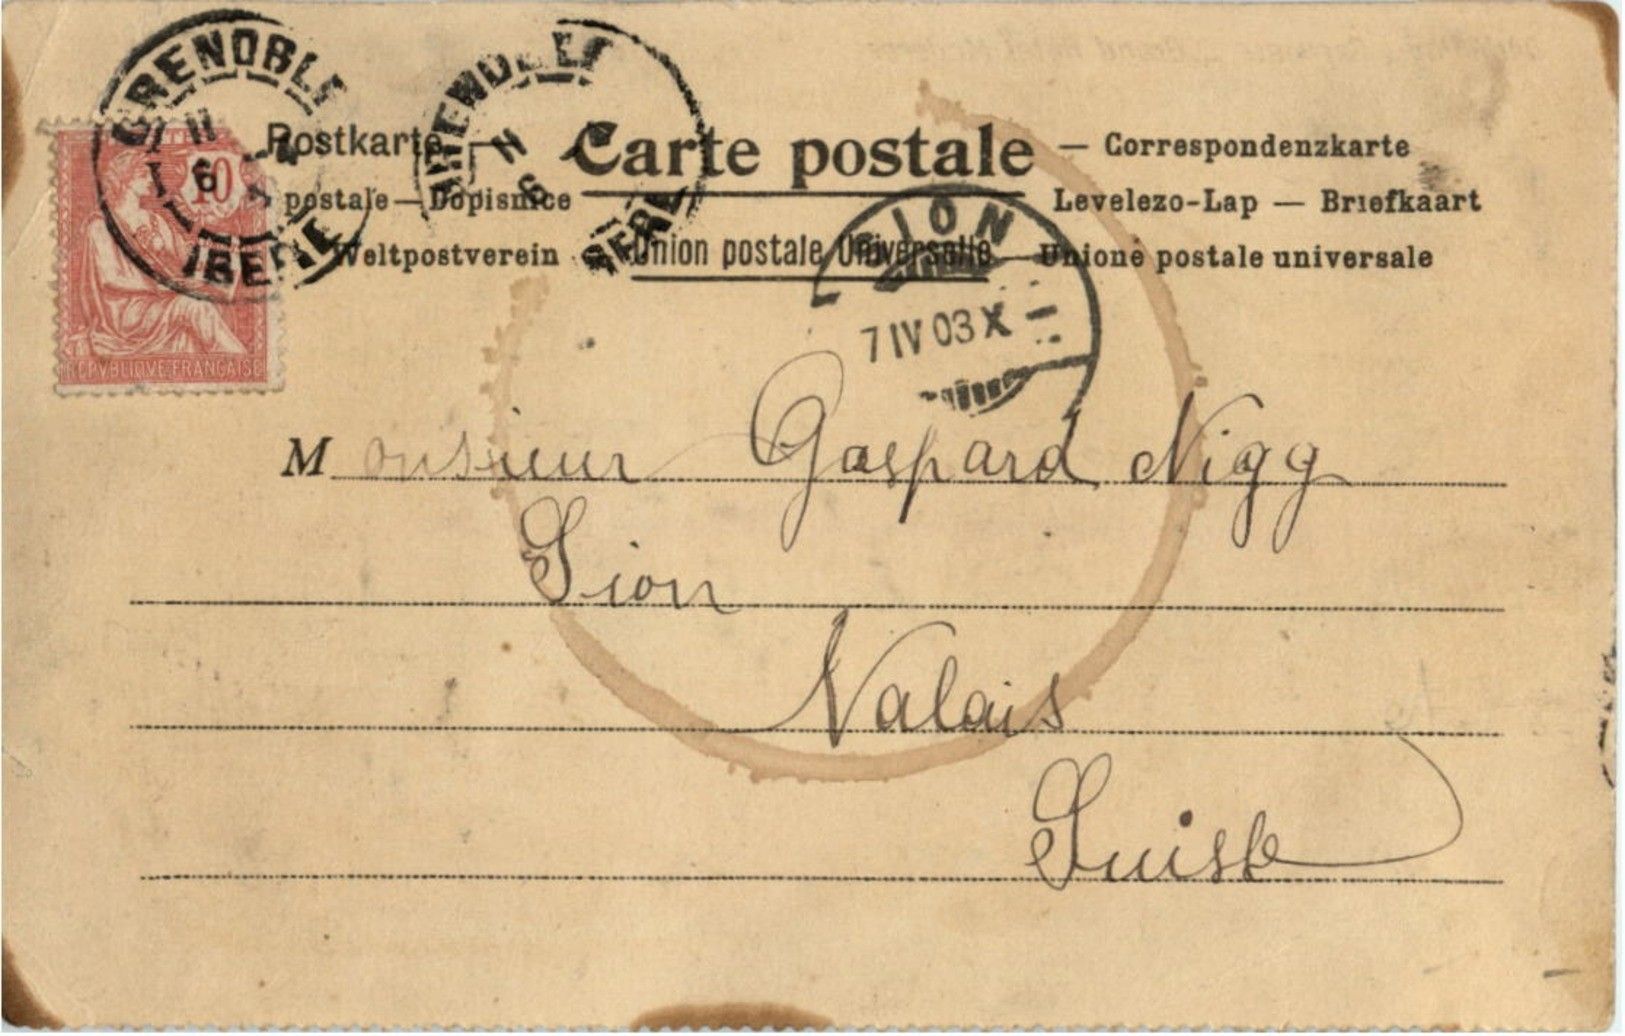 GRENOBLE
ISERE
10
REPVBLIQVE FRANÇAISE
GRENOBLE
ISERE
Postkarte — Carte postale — Correspondenzkarte
postale — Dopisnice Levelezo-Lap — Briefkaart
Weltpostverein Union postale Universelle — Unione postale universale
SION
7 IV 03 X
Monsieur Gaspard Nigg
Sion
Valais
Suisse